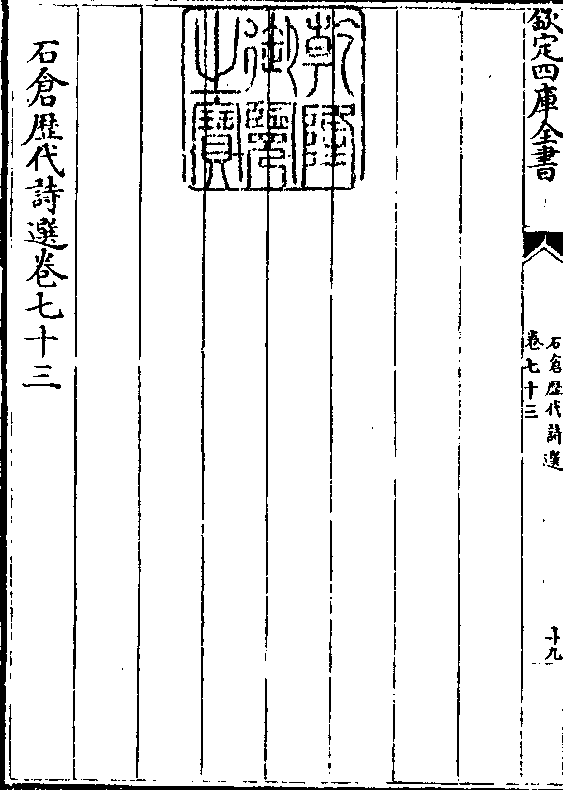 欽定四庫全書
石倉歷代詩選
卷七十三
十九
乾隆
御覽
之寶
石倉歷代詩選卷七十三